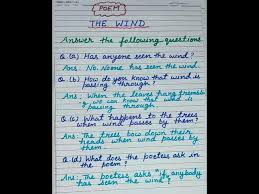 POEM
THE WIND
Answer the following questions
Q.(a) Has anyone seen the wind?
Ans: No. None has seen the wind.
Q.(b) How do you know that wind is
passing through
Ans: When the leaves hang tremb-
g we can know that wind is
passing through.
Q.(c) What happens to the trees
when wind passes by them?
Ans: The trees bow down their
heads when wind passes by
them.
Q.(d) What does the poetess ask in
the poem?
Ans: The poetess asks "if anybody
has seen the wind"?